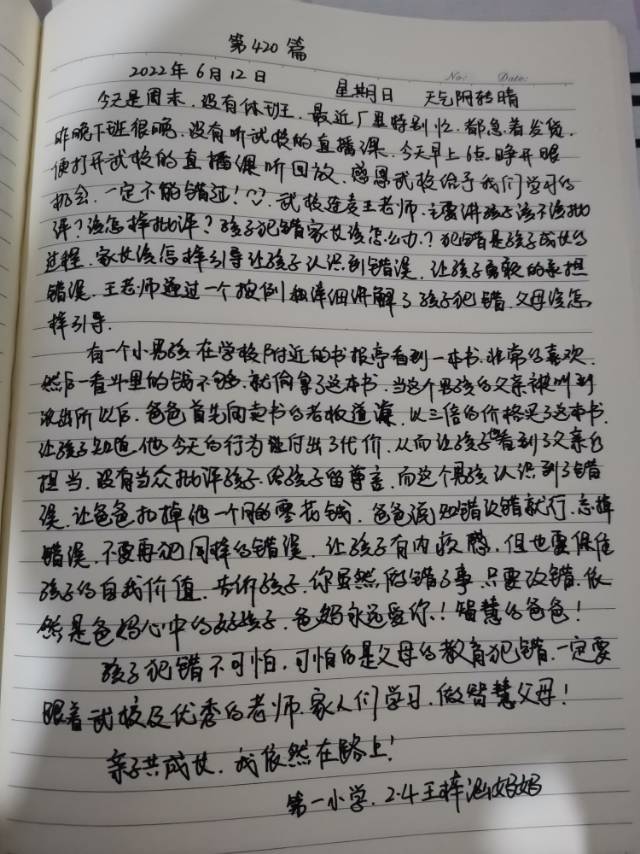 第420篇
No:
Date:
2022年6月12日 星期日 天气阴转晴
今天是周末,没有休班,最近厂里特别忙,都急着发货,
昨晚下班很晚,没有听武校的直播课,今天早上6点睁开眼
便打开武校的直播课听回放,感恩武校给予我们学习的
机会,一定不能错过!武校连麦王老师,主要讲孩子该不该批
评?该怎样批评?孩子犯错家长该怎么办?犯错是孩子成长的
过程,家长该怎样引导让孩子认识到错误,让孩子勇敢的承担
错误,王老师通过一个案例和详细讲解了孩子犯错,父母该怎
样引导.
有一个小男孩在学校附近的书报亭看到一本书,非常的喜欢,
然后一看斗里的钱不够,就偷拿了这本书,当这个男孩的父亲被叫到
派出所以后,爸爸首先向卖书的老板道歉,以三倍的价格买了这本书,
让孩子知道他今天的行为付出了代价,从而让孩子看到了父亲的
担当,没有当众批评孩子,给孩子留尊言,而这个男孩认识到了错
误,让爸爸扣掉他一个月的零花钱,爸爸说知错改错就行,忘掉
错误,不要再犯同样的错误,让孩子有内疚感,但也要保住
孩子的自我价值,告诉孩子,你虽然做错了事,只要改错,依
然是爸妈心中的好孩子,爸妈永远爱你!智慧的爸爸!
孩子犯错不可怕,可怕的是父母的教育犯错,一定要
跟着武校及优秀的老师,家人们学习,做智慧父母!
亲子共成长,我依然在路上!
第一小学,2.4王梓涵妈妈